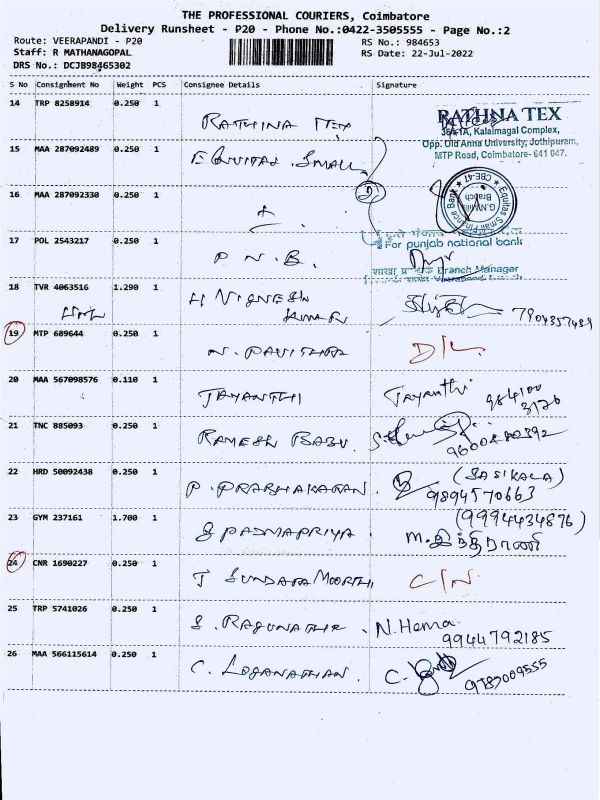 THE PROFESSIONAL COURIERS, Coimbatore
Delivery Runsheet - P20 - Phone No.:0422-3505555 - Page No.:2
Route: VEERAPANDI - P20
RS No.: 984653
Staff: R MATHANAGOPAL
RS Date: 22-Jul-2022
DRS No.: DCJB98465302
S No Consignment No Weight PCS Consignee Details Signature
14 TRP 8258914 0.250 1 RATHINA TEX
RATHNA TEX
36A-1A, Kalaimagal Complex,
Opp. Old Anna University, Jothipuram,
MTP Road, Coimbatore- 641 047.
15 MAA 287092489 0.250 1 EQUITAS SMALL
16 MAA 287092330 0.250 1
Equitas Small Finance Bank
CBE-47
G.N.Mills
Branch
17 POL 2543217 0.250 1 P N B.
For punjab national bank
Branch Manager
18 TVR 4063516 1.290 1 H VIGNESH KUMAR 7904357489
19 MTP 689644 0.250 1 N. PAVITHRA D/L
20 MAA 567098576 0.110 1 JAYANTHI Jayanthi 984100
3126
21 TNC 885093 0.250 1 RAMESH BABU
22 HRD 50092438 0.250 1 P. PRABHAKARAN. (SASIKALA)
9894570663
23 GYM 237161 1.700 1 S PADMAPRIYA (9994434876)
M. இந்திராணி
24 CNR 1690227 0.250 1 T SUNDARA MOORTHI C/N
25 TRP 5741026 0.250 1 S. RAGUNATHR. N. Hema
9944792185
26 MAA 566115614 0.250 1 C. LOGANATHAN. C. 9787009555